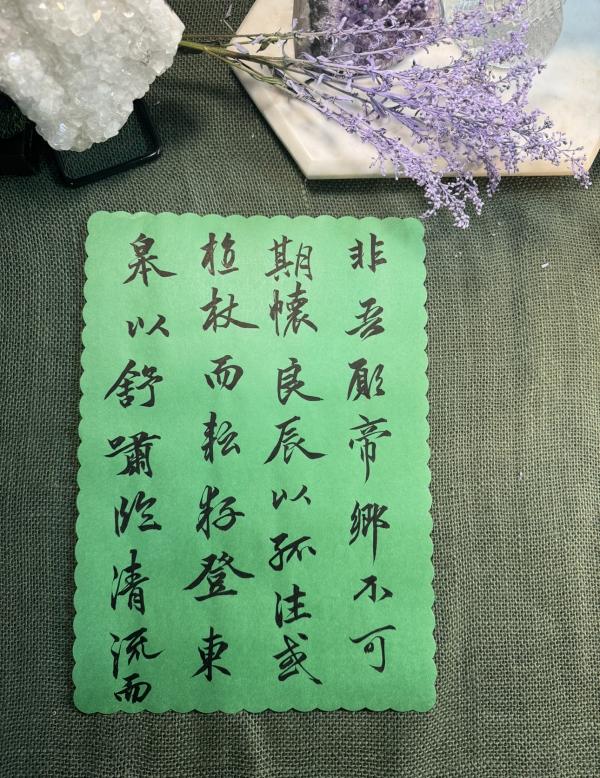 非吾願帝鄉不可
期懷良辰以孤往或
植杖而耘耔登東
皋以舒嘯臨清流而